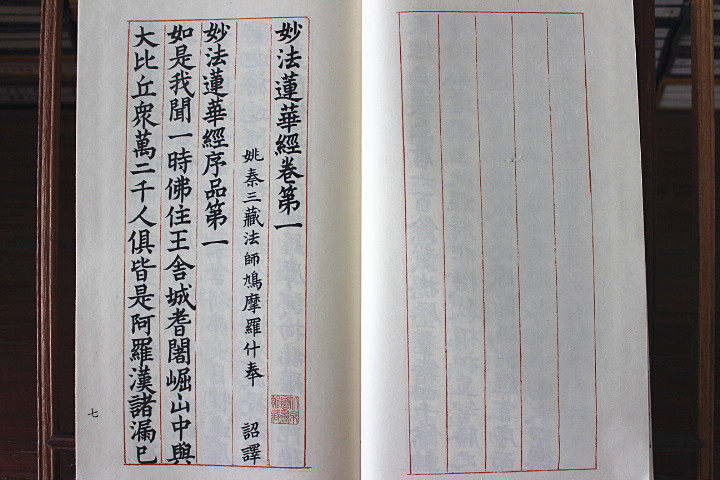 妙法蓮華經卷第一
姚秦三藏法師鳩摩羅什奉　詔譯
妙法蓮華經序品第一
如是我聞一時佛住王舍城耆闍崛山中與
大比丘衆萬二千人俱皆是阿羅漢諸漏已
七